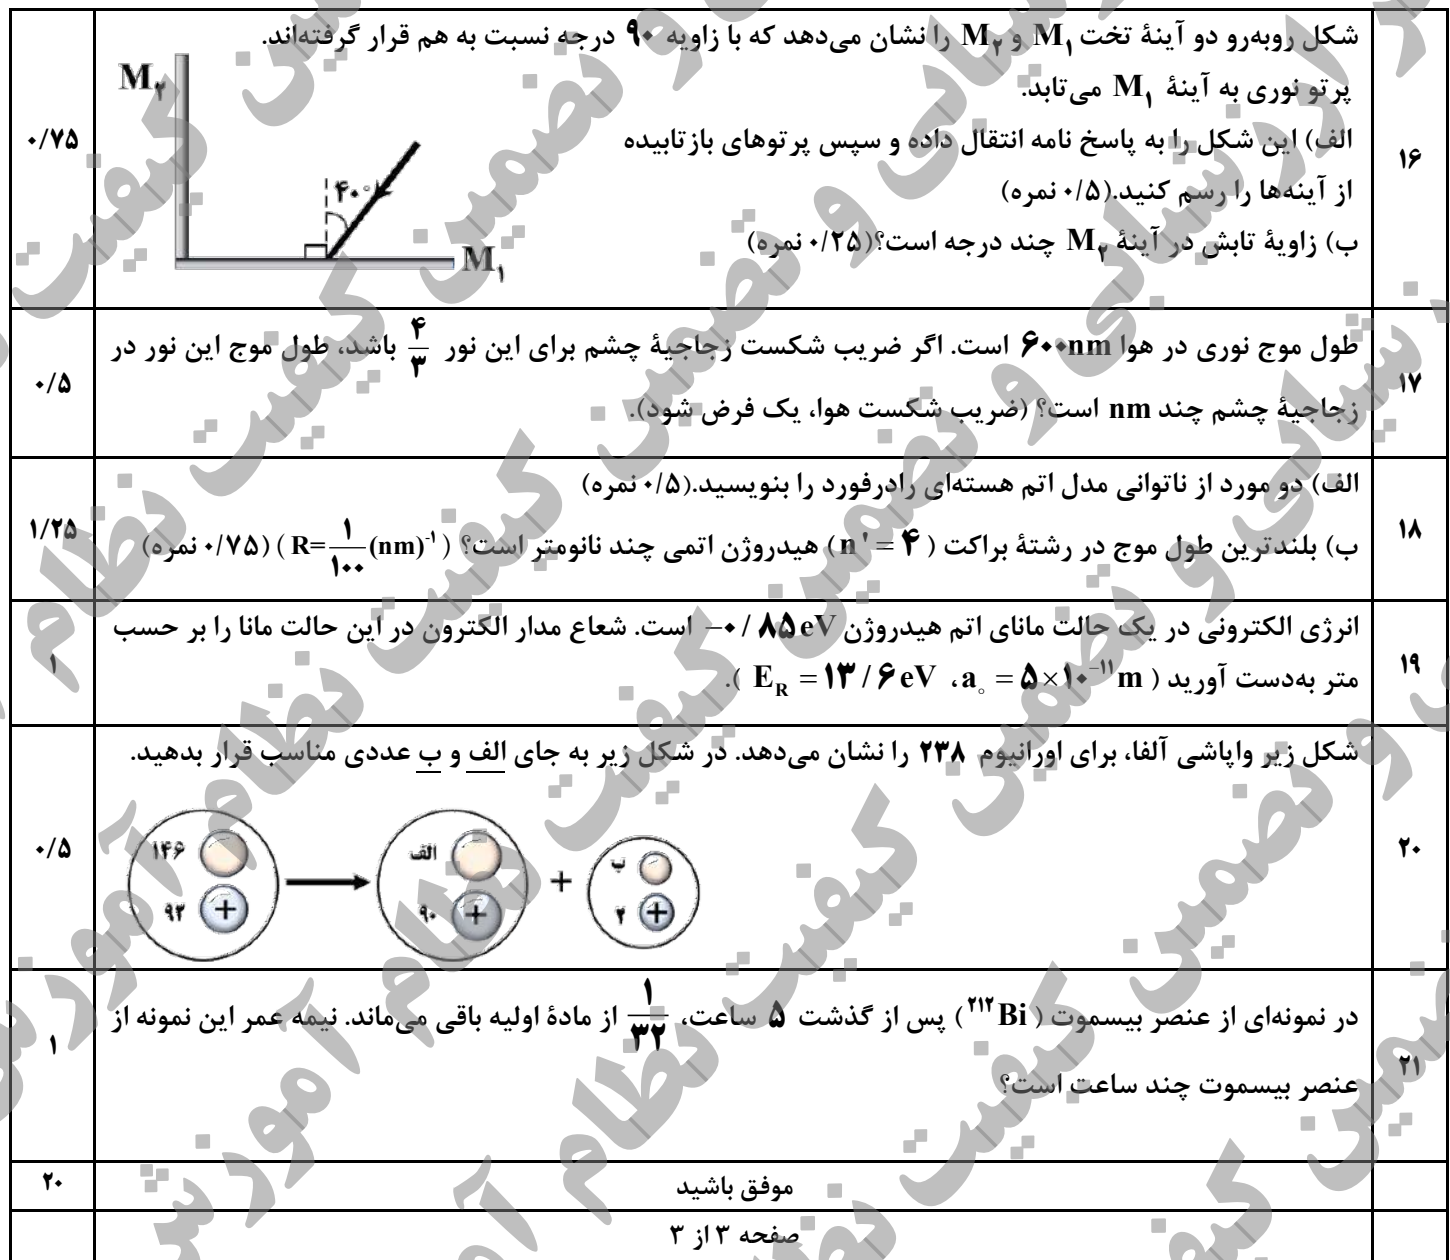 ۱۶
شکل روبه‌رو دو آینهٔ تخت M۱ و M۲ را نشان می‌دهد که با زاویه ۹۰ درجه نسبت به هم قرار گرفته‌اند.
پرتو نوری به آینهٔ M۱ می‌تابد.
الف) این شکل را به پاسخ نامه انتقال داده و سپس پرتوهای بازتابیده
از آینه‌ها را رسم کنید.(۰/۵ نمره)
ب) زاویهٔ تابش در آینهٔ M۲ چند درجه است؟(۰/۲۵ نمره)
M۲
۴۰°
M۱
۰/۷۵
۱۷
طول موج نوری در هوا ۶۰۰nm است. اگر ضریب شکست زجاجیهٔ چشم برای این نور ۴/۳ باشد، طول موج این نور در
زجاجیهٔ چشم چند nm است؟ (ضریب شکست هوا، یک فرض شود).
۰/۵
۱۸
الف) دو مورد از ناتوانی مدل اتم هسته‌ای رادرفورد را بنویسید.(۰/۵ نمره)
ب) بلندترین طول موج در رشتهٔ براکت (n' = ۴) هیدروژن اتمی چند نانومتر است؟ (R=۱/۱۰۰(nm)⁻¹) (۰/۷۵ نمره)
۱/۲۵
۱۹
انرژی الکترونی در یک حالت مانای اتم هیدروژن −۰/۸۵eV است. شعاع مدار الکترون در این حالت مانا را بر حسب
متر به‌دست آورید (a₀ = ۵×۱۰⁻¹¹m ، E_R = ۱۳/۶eV).
۱
۲۰
شکل زیر واپاشی آلفا، برای اورانیوم ۲۳۸ را نشان می‌دهد. در شکل زیر به جای الف و ب عددی مناسب قرار بدهید.
۱۴۶
الف
ب
+
۹۲ +
۹۰ +
۲ +
۰/۵
۲۱
در نمونه‌ای از عنصر بیسموت (²¹²Bi) پس از گذشت ۵ ساعت، ۱/۳۲ از مادهٔ اولیه باقی می‌ماند. نیمه عمر این نمونه از
عنصر بیسموت چند ساعت است؟
۱
موفق باشید
۲۰
صفحه ۳ از ۳